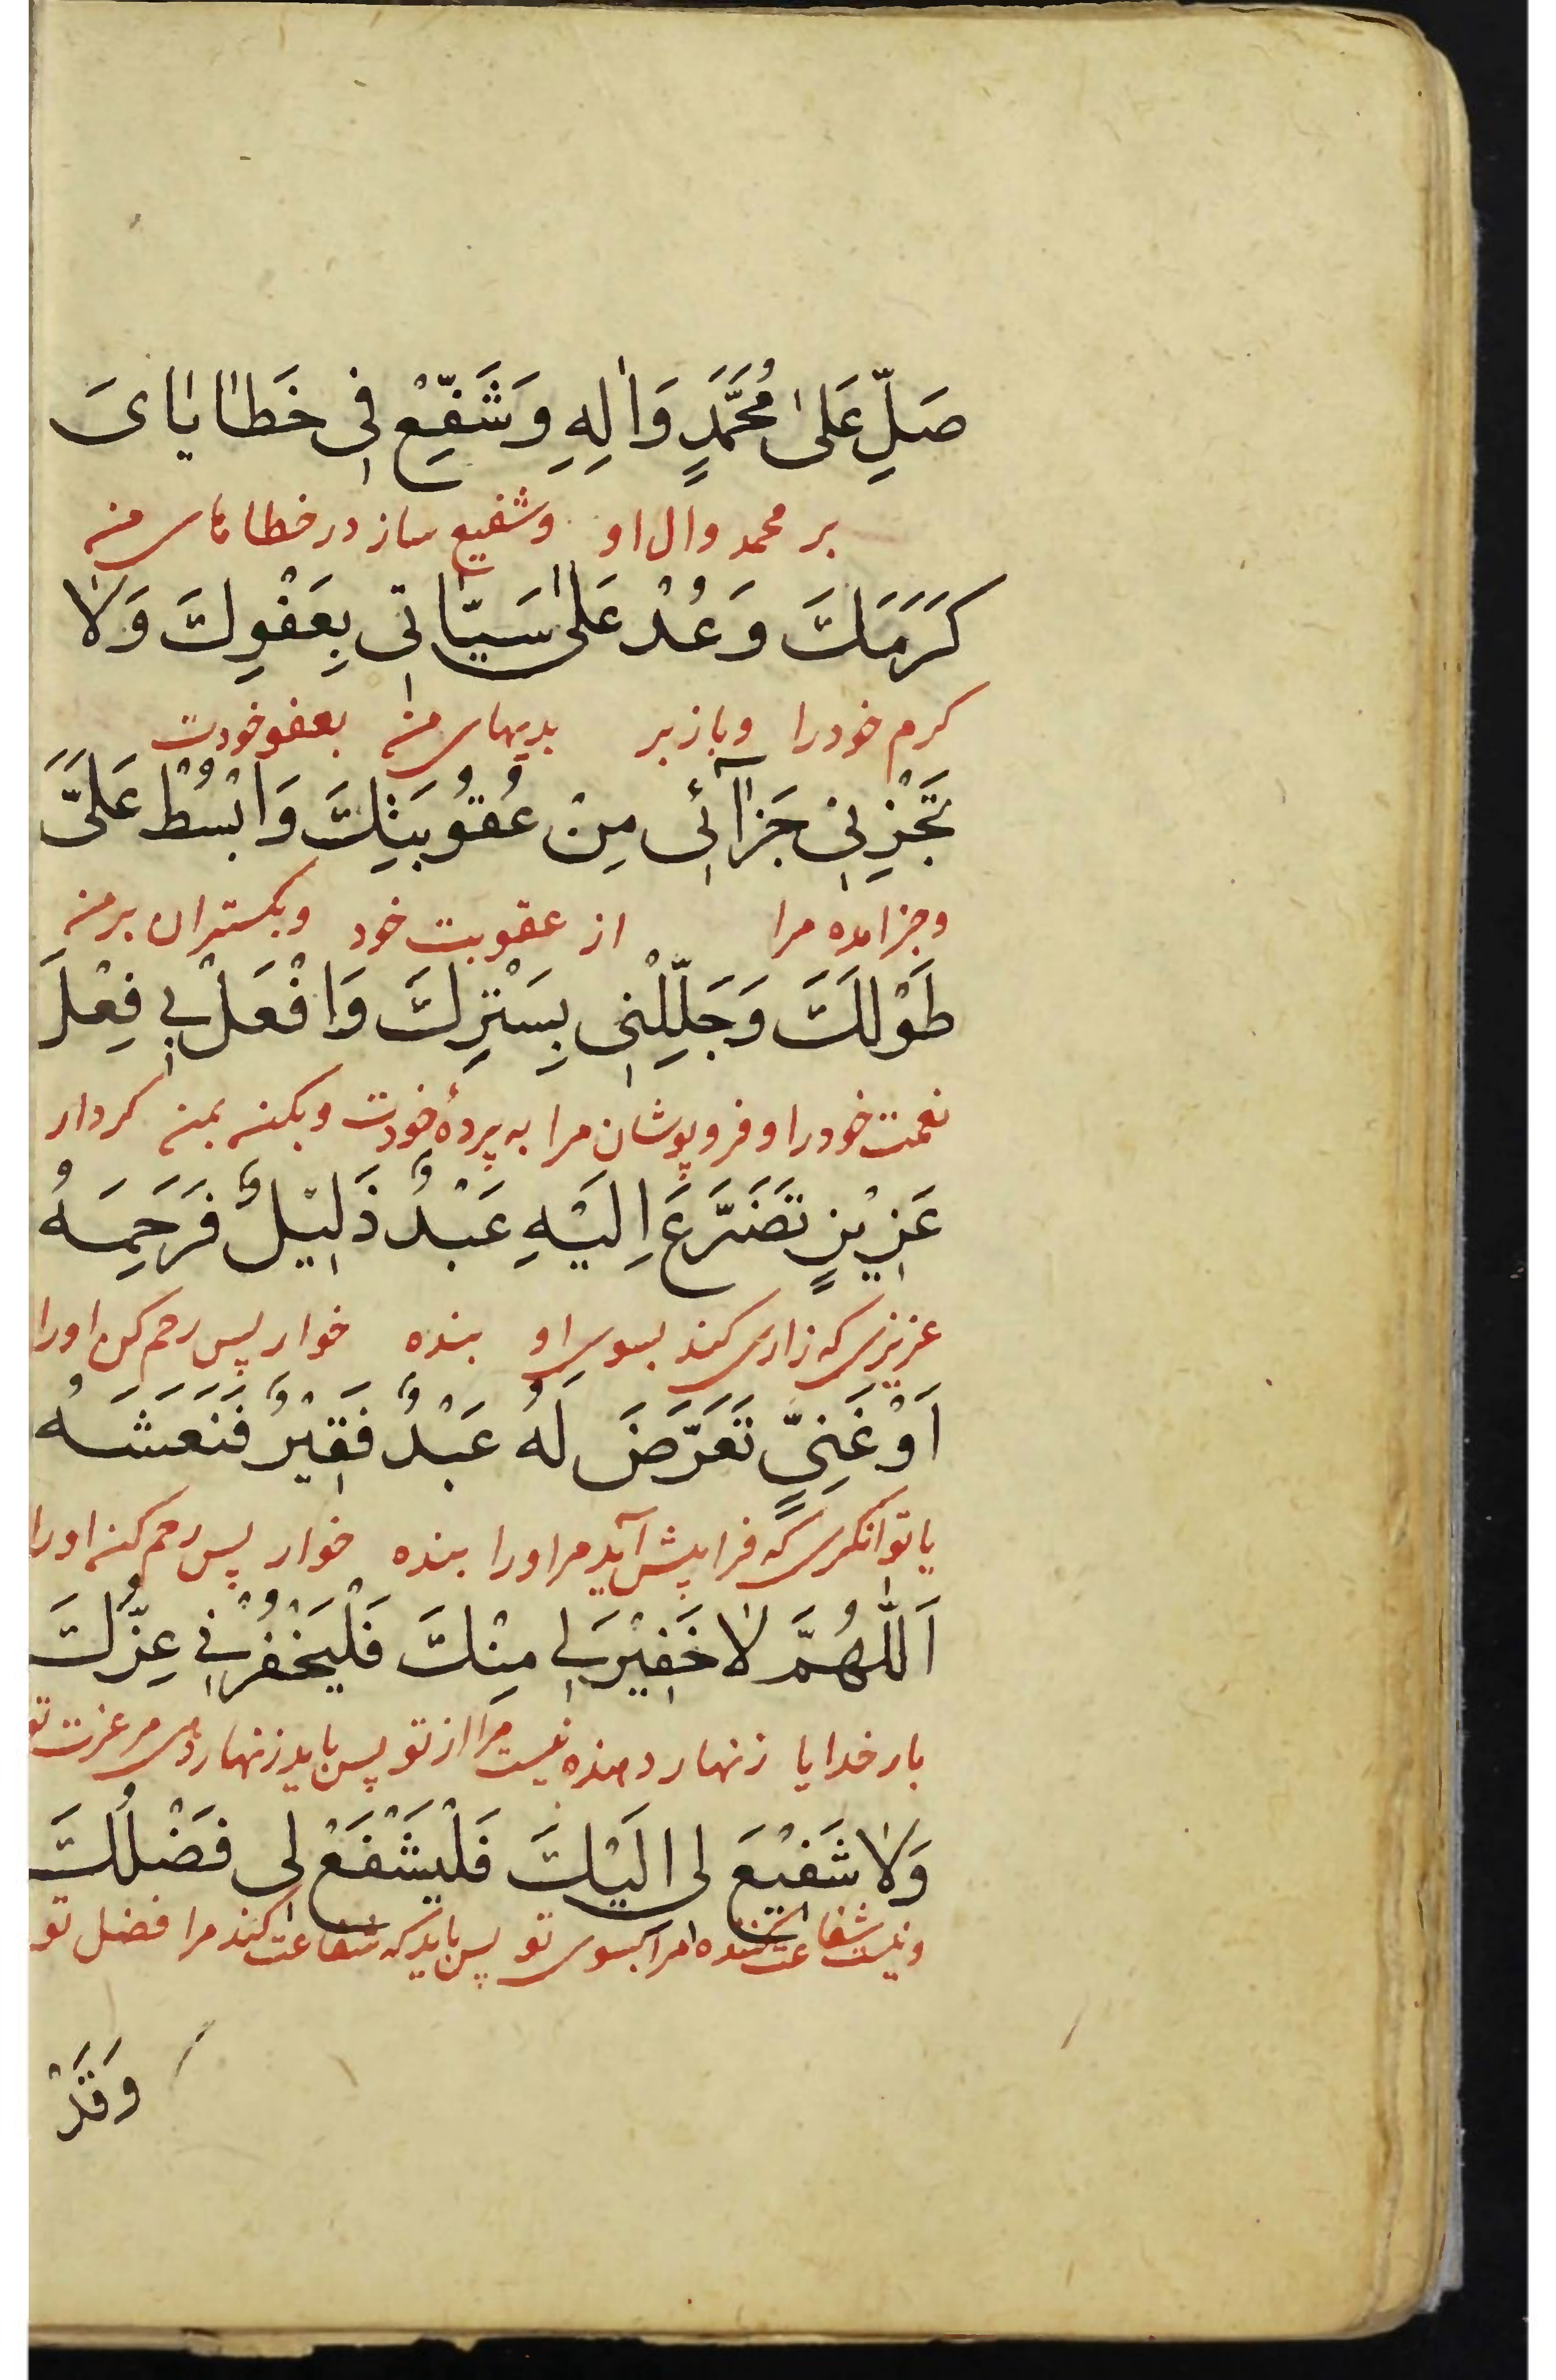 صَلِّ عَلىٰ مُحَمَّدٍ وَاٰلِهِ وَشَفِّعْ فِي خَطَايَاىَ
بر محمد وال او وشفیع ساز در خطاهای من
كَرَمَكَ وَعُدْ عَلىٰ سَيِّاٰتي بِعَفْوِكَ وَلَا
کرم خود را وباز بر بدیهای من بعفو خودت
تَجْزِنِي جَزَآئِي مِنْ عُقُوبَتِكَ وَابْسُطْ عَلَىَّ
وجزا مده مرا از عقوبت خود وبکستران بر من
طَوْلَكَ وَجَلِّلْنِي بِسَتْرِكَ وَافْعَلْ بِي فِعْلَ
نعمت خود را وفرو پوشان مرا به پردهٔ خودت وبکن بمن کردار
عَزِيْزٍ تَضَرَّعَ اِلَيْهِ عَبْدٌ ذَلِيْلٌ فَرَحِمَهُ
عزیزی که زاری کند بسوی او بنده خوار پس رحم کن اورا
اَوْ غَنِيٍّ تَعَرَّضَ لَهُ عَبْدٌ فَقِيْرٌ فَنَعَشَهُ
یا توانکری که فرا پیش آید مر اورا بنده خوار پس رحم کند اورا
اَللّٰهُمَّ لَا خَفِيْرَ لِي مِنْكَ فَلْيَخْفُرْنِي عِزُّكَ
بار خدایا زنهار دهنده نیست مرا از تو پس باید زنهار دهی مر عزت تو
وَلَا شَفِيْعَ لِي الَيْكَ فَلْيَشْفَعْ لِي فَضْلُكَ
ونیست شفاعت کننده مرا بسوی تو پس باید که شفاعت کند مرا فضل تو
وَقَدْ